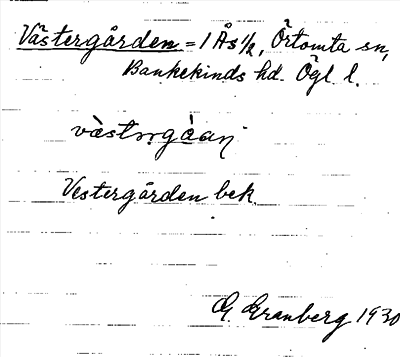 Västergården = 1 Ås 1/2, Örtomta sn,
Bankekinds hd. Ögl l.
Vestergården bek.
G. Granberg 1930